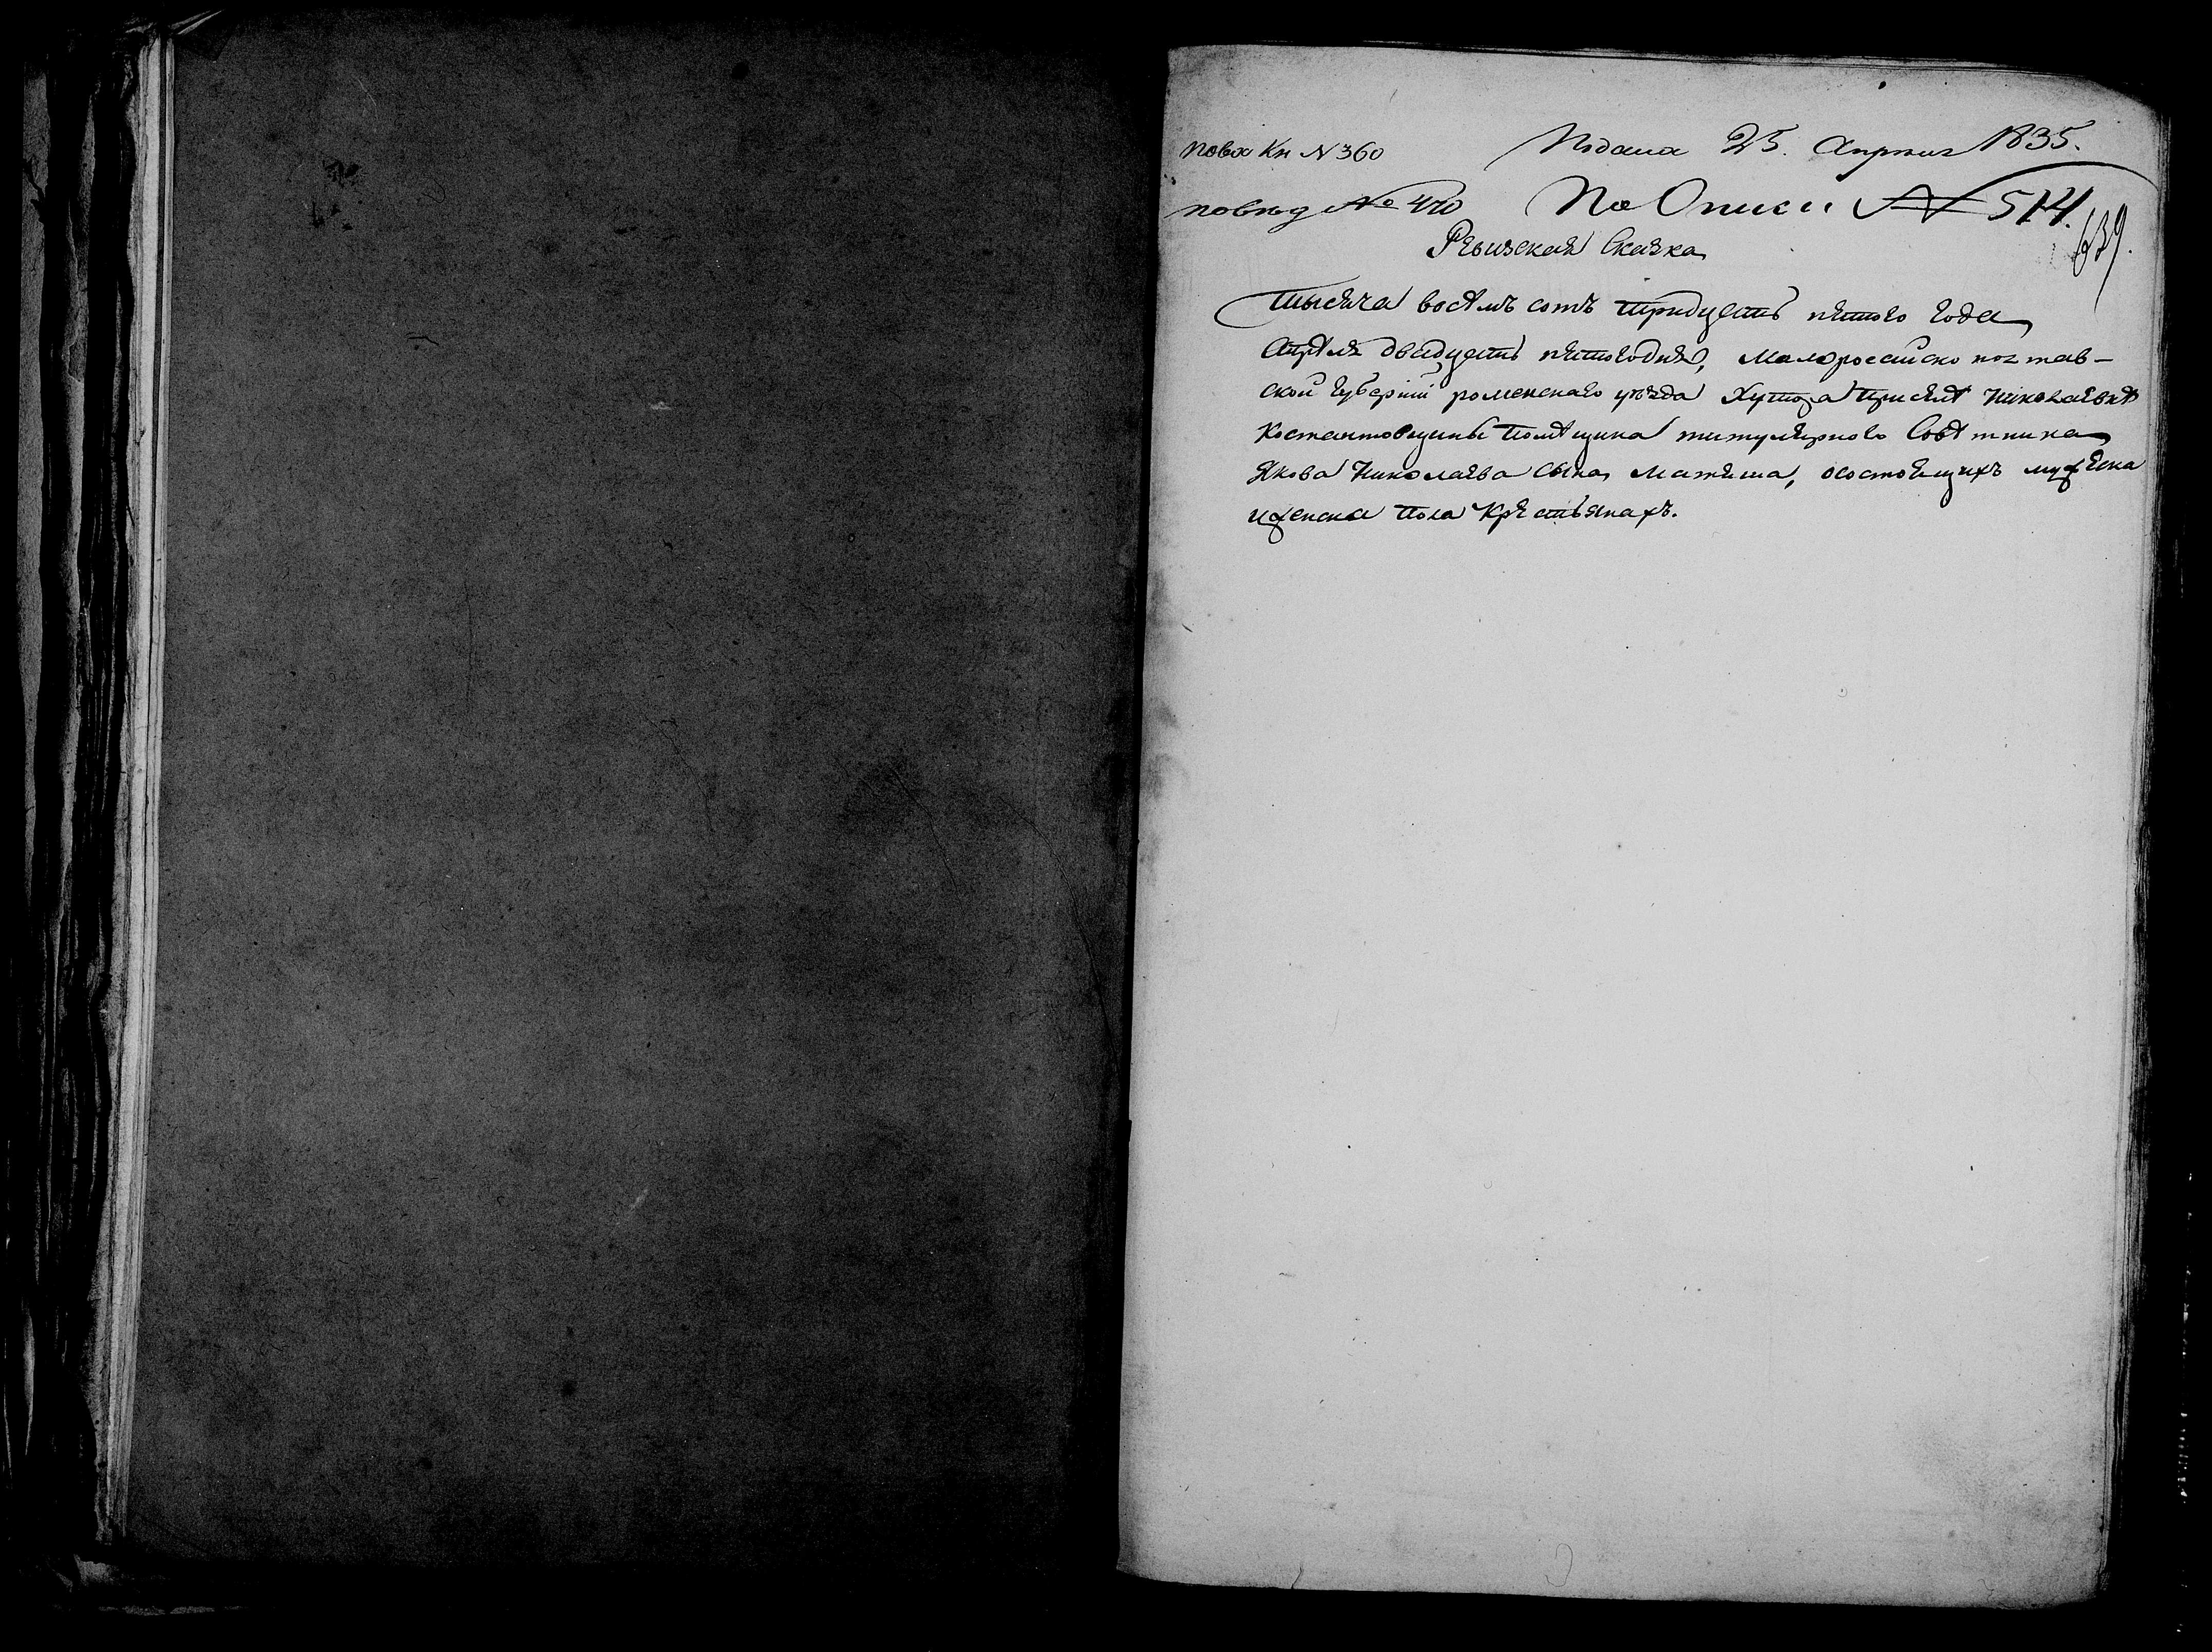 По вх Кн № 360
Подана 25. Апреля 1835.
по вѣд № 470
По Описи № 514.
639.
Ревизская Сказка
Тысяча восемъ сотъ тридцать пятого года
Апреля двадцать пятого дня, Малороссийско полтав-
ской губернии роменского уѣзда Хутора при селе Николаевке
Костантовщины помещика титулярного Советника
Якова Николаева сына Матяша, осостоящихъ мужеска
и женска пола Крестьянахъ.